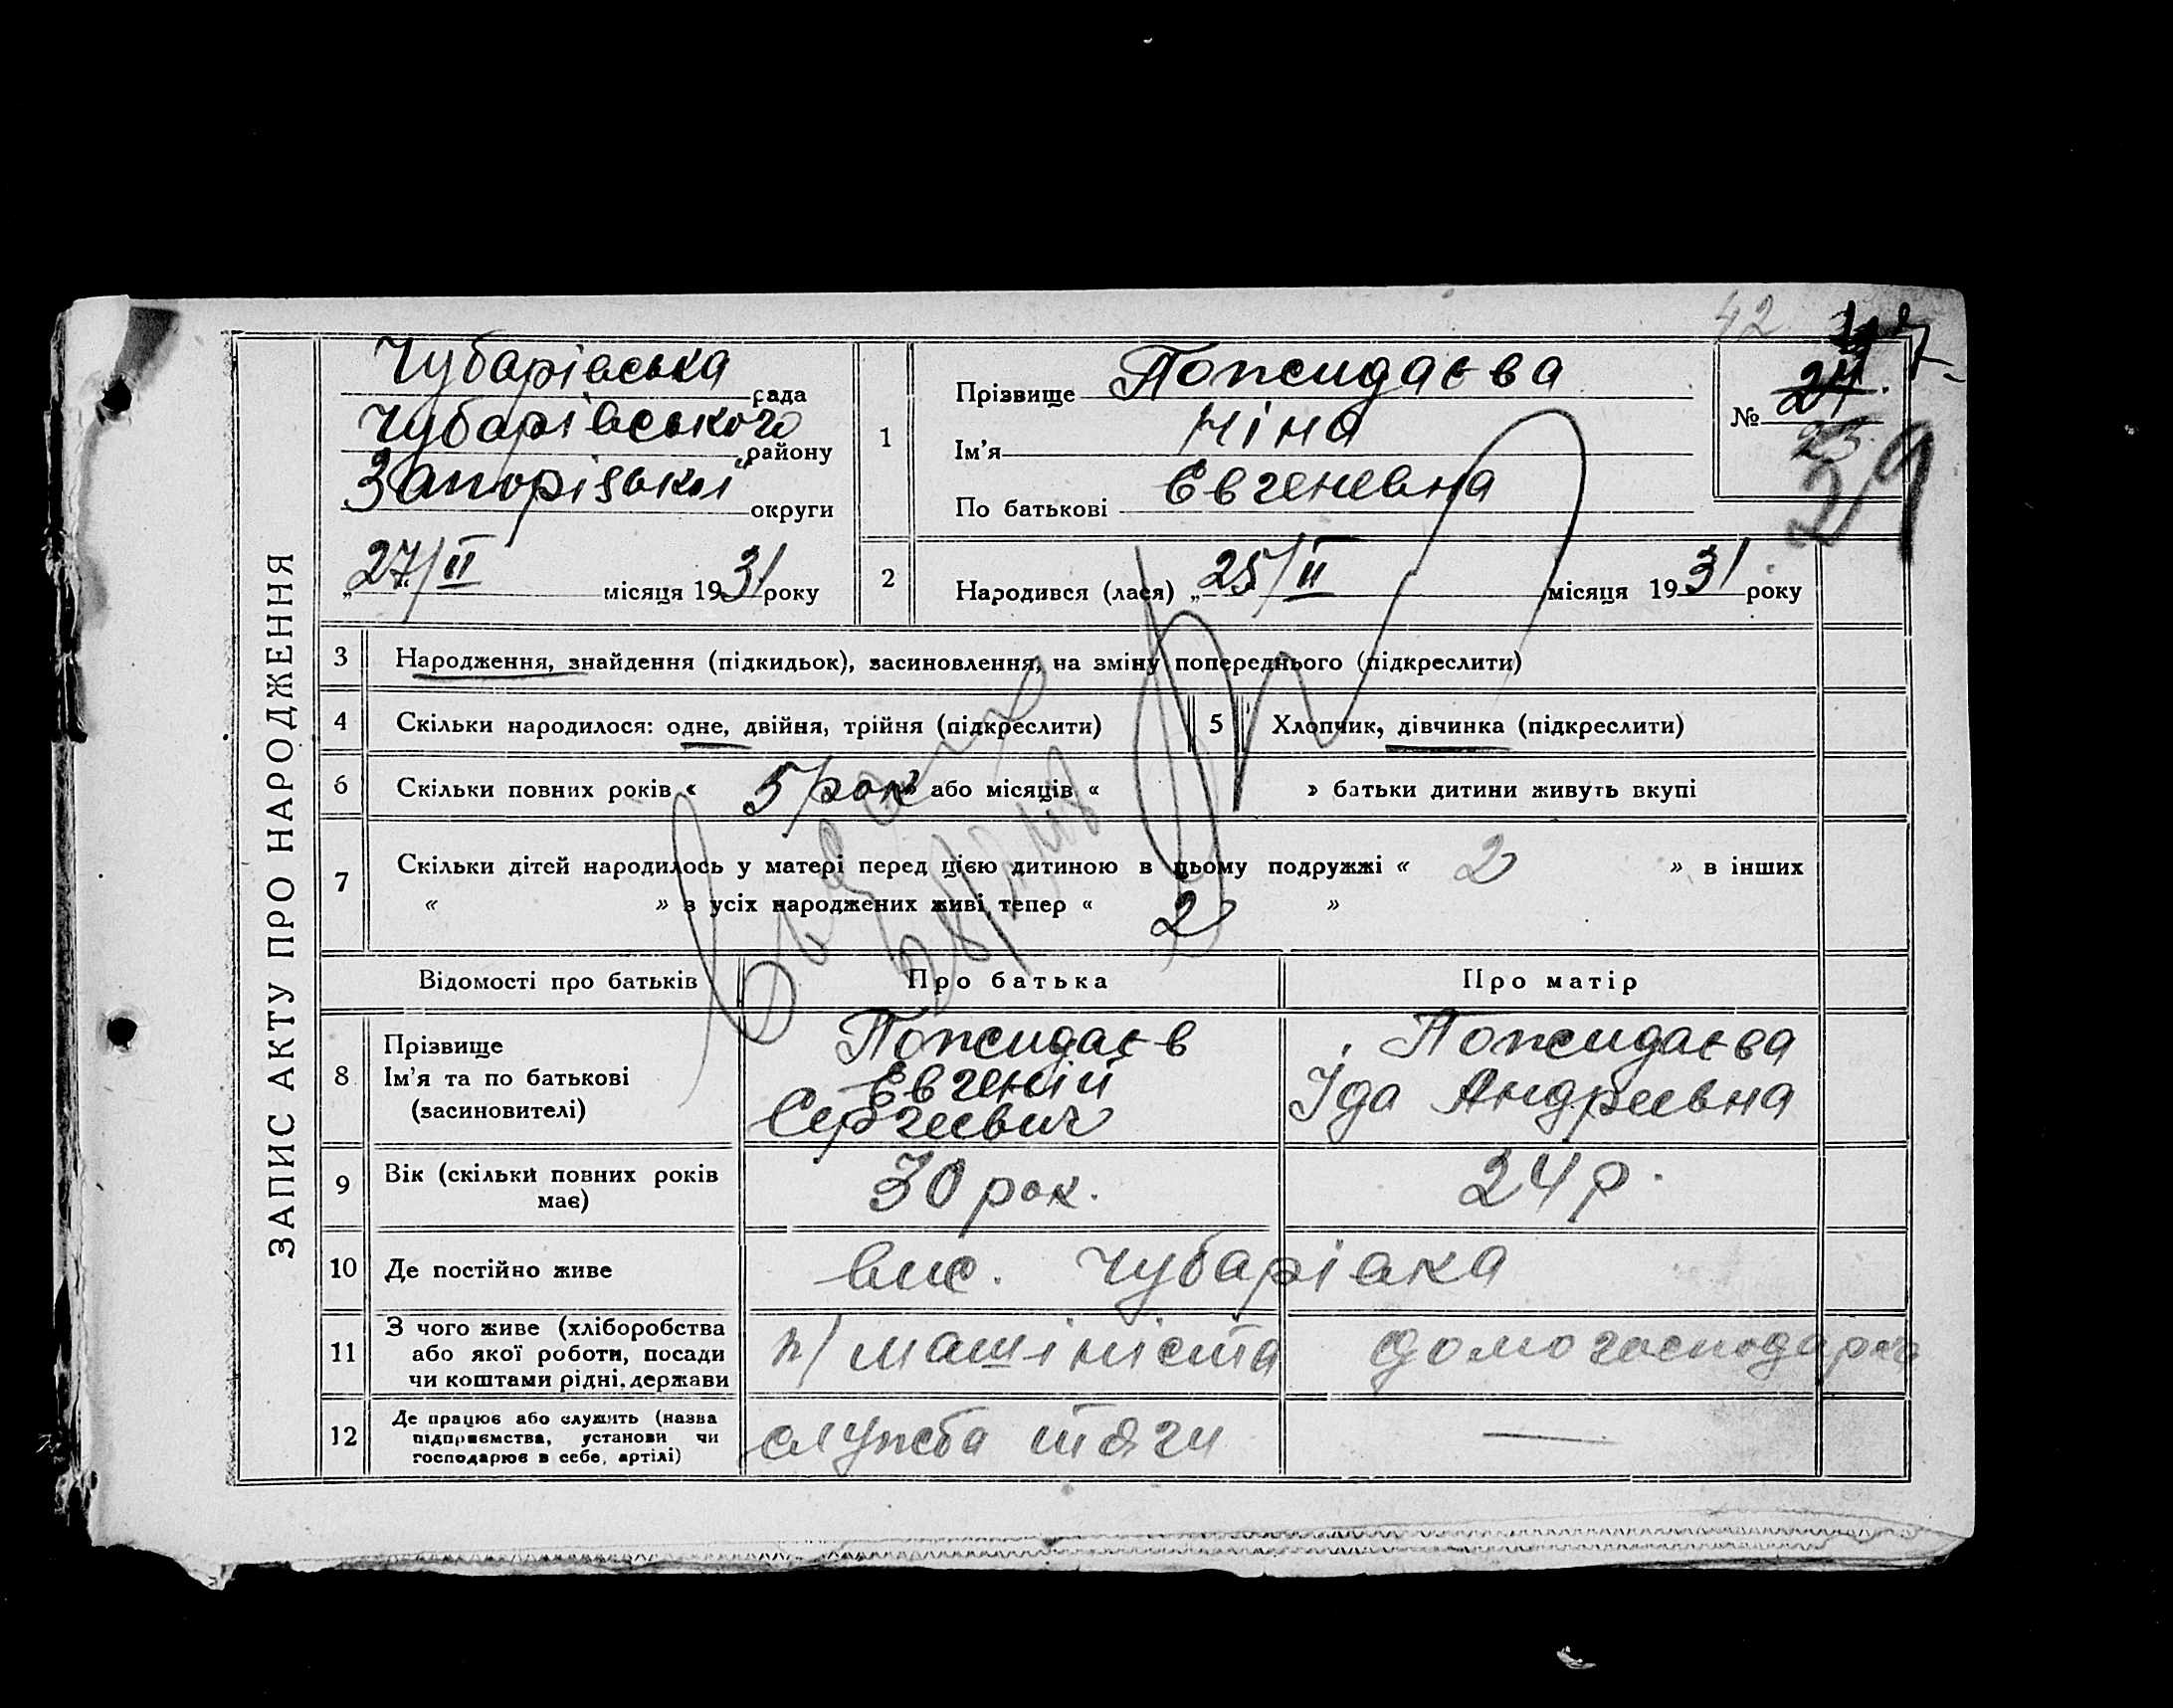 42
ЗАПИС АКТУ ПРО НАРОДЖЕННЯ
Чубарівська рада
Чубарівського району
Запорізької округи
„27/II місяця 1931 року
1
Прізвище Пожидаєва
Ім'я Ніна
По батькові Євгеневна
№ 24
23
29
2
Народився (лася) „25/II місяця 1931 року
3 Народження, знайдення (підкидьок), засиновлення, на зміну попереднього (підкреслити)
4 Скільки народилося: одне, двійня, трійня (підкреслити) 5 Хлопчик, дівчинка (підкреслити)
6 Скільки повних років « 5/рок » або місяців « » батьки дитини живуть вкупі
7 Скільки дітей народилось у матері перед цією дитиною в цьому подружжі « 2 » в інших
« » з усіх народжених живі тепер « 2 »
Відомості про батьків Про батька Про матір
8 Прізвище
Ім'я та по батькові
(засиновителі)
Пожидаєв
Євгеній
Сергеевич
Пожидаєва
Іда Андреевна
9 Вік (скільки повних років
має)
30 рок. 24 р.
10 Де постійно живе вис. Чубарівка
11 З чого живе (хліборобства
або якої роботи, посади
чи коштами рідні, держави
п/машініста домогосподарка
12 Де працює або служить (назва
підприємства, установи чи
господарює в себе, артілі)
служба тяги —